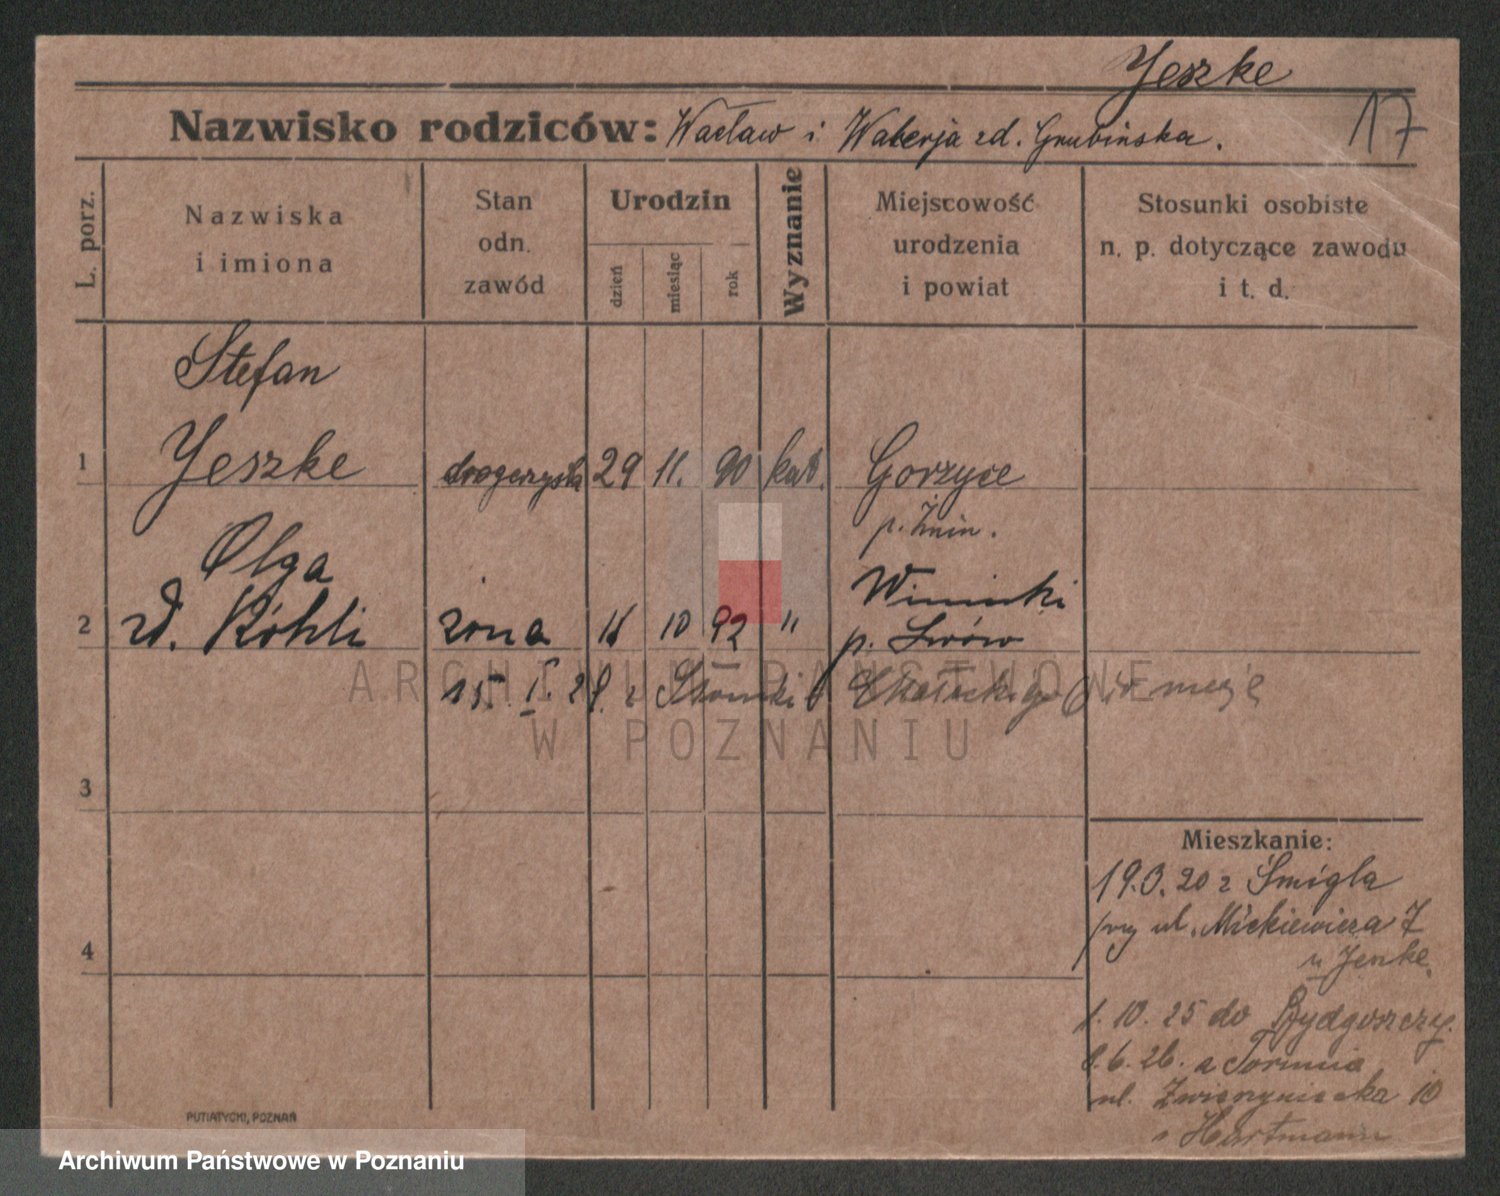 Jeszke
Nazwisko rodziców: Wacław i Walerja zd. Grubińska.
17
L. porz.
Nazwiska
i imiona
Stan
odn.
zawód
Urodzin
dzień
miesiąc
rok
Wyznanie
Miejscowość
urodzenia
i powiat
Stosunki osobiste
n. p. dotyczące zawodu
i t. d.
Stefan
1 Jeszke drogerzysta 29 11. 90 kat. Gorzyce
p. Żnin.
Olga
2 zd. Köhli żona 10 92 " Winniki
p. Lwów
15. I. 28. z
3
4
Mieszkanie:
19.3.20 z Śmigla
przy ul. Mickiewicza 7
u Jeszke.
1. 10. 25 do Bydgoszczy.
8. 6. 26. z Torunia
ul. Zwierzyniecka 10
Hartmann
PUTIATYCKI, POZNAŃ
ARCHIWUM PAŃSTWOWE
W POZNANIU
Archiwum Państwowe w Poznaniu